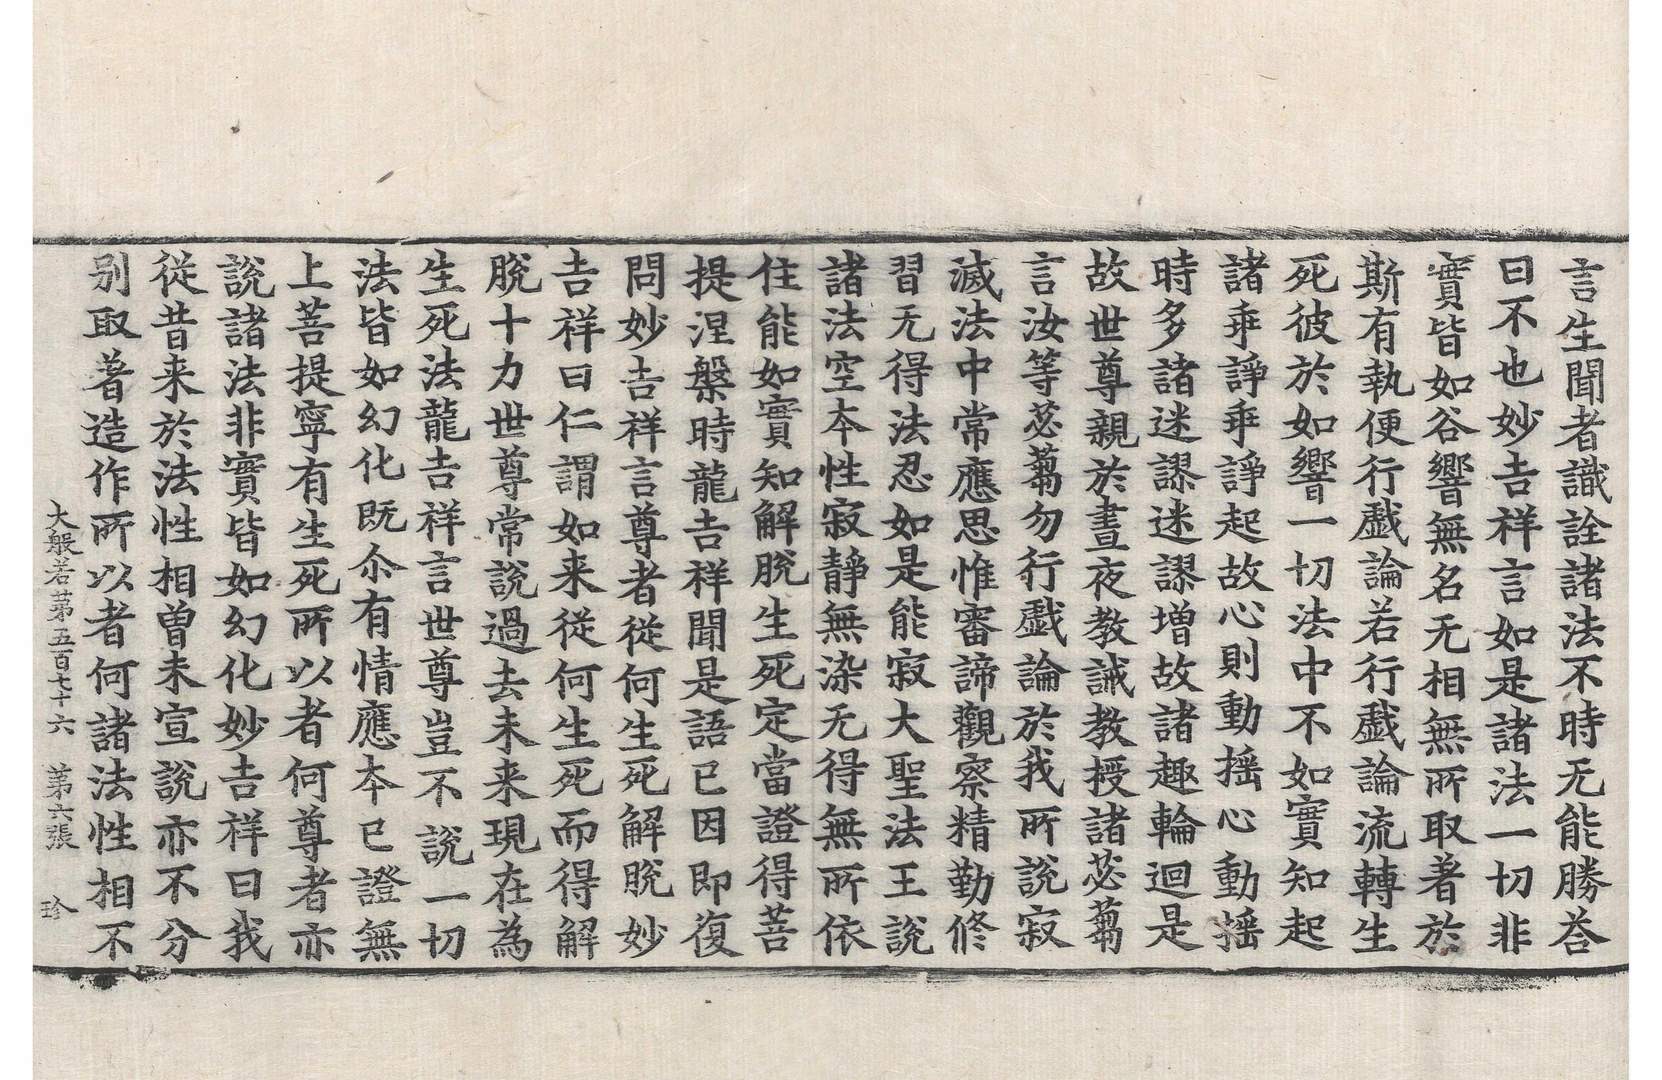 言生聞者識詮諸法不時无能勝荅
曰不也妙吉祥言如是諸法一切非
實皆如谷響無名无相無所取著於
斯有執便行戱論若行戱論流轉生
死彼於如響一切法中不如實知起
諸乖諍乖諍起故心則動揺心動揺
時多諸迷謬迷謬增故諸趣輪迴是
故世尊親於晝夜教誡教授諸苾蒭
言汝等苾蒭勿行戱論於我所說寂
滅法中常應思惟審諦觀察精勤修
習无得法忍如是能寂大聖法王說
諸法空本性寂靜無染无得無所依
住能如實知解脫生死定當證得菩
提涅槃時龍吉祥聞是語已因即復
問妙吉祥言尊者從何生死解脫妙
吉祥曰仁謂如来從何生死而得解
脫十力世尊常說過去未来現在為
生死法龍吉祥言世尊豈不說一切
法皆如幻化既尒有情應本已證無
上菩提寧有生死所以者何尊者亦
說諸法非實皆如幻化妙吉祥曰我
從昔来於法性相曾未宣說亦不分
別取著造作所以者何諸法性相不
大般若第五百七十六 第六張 珍